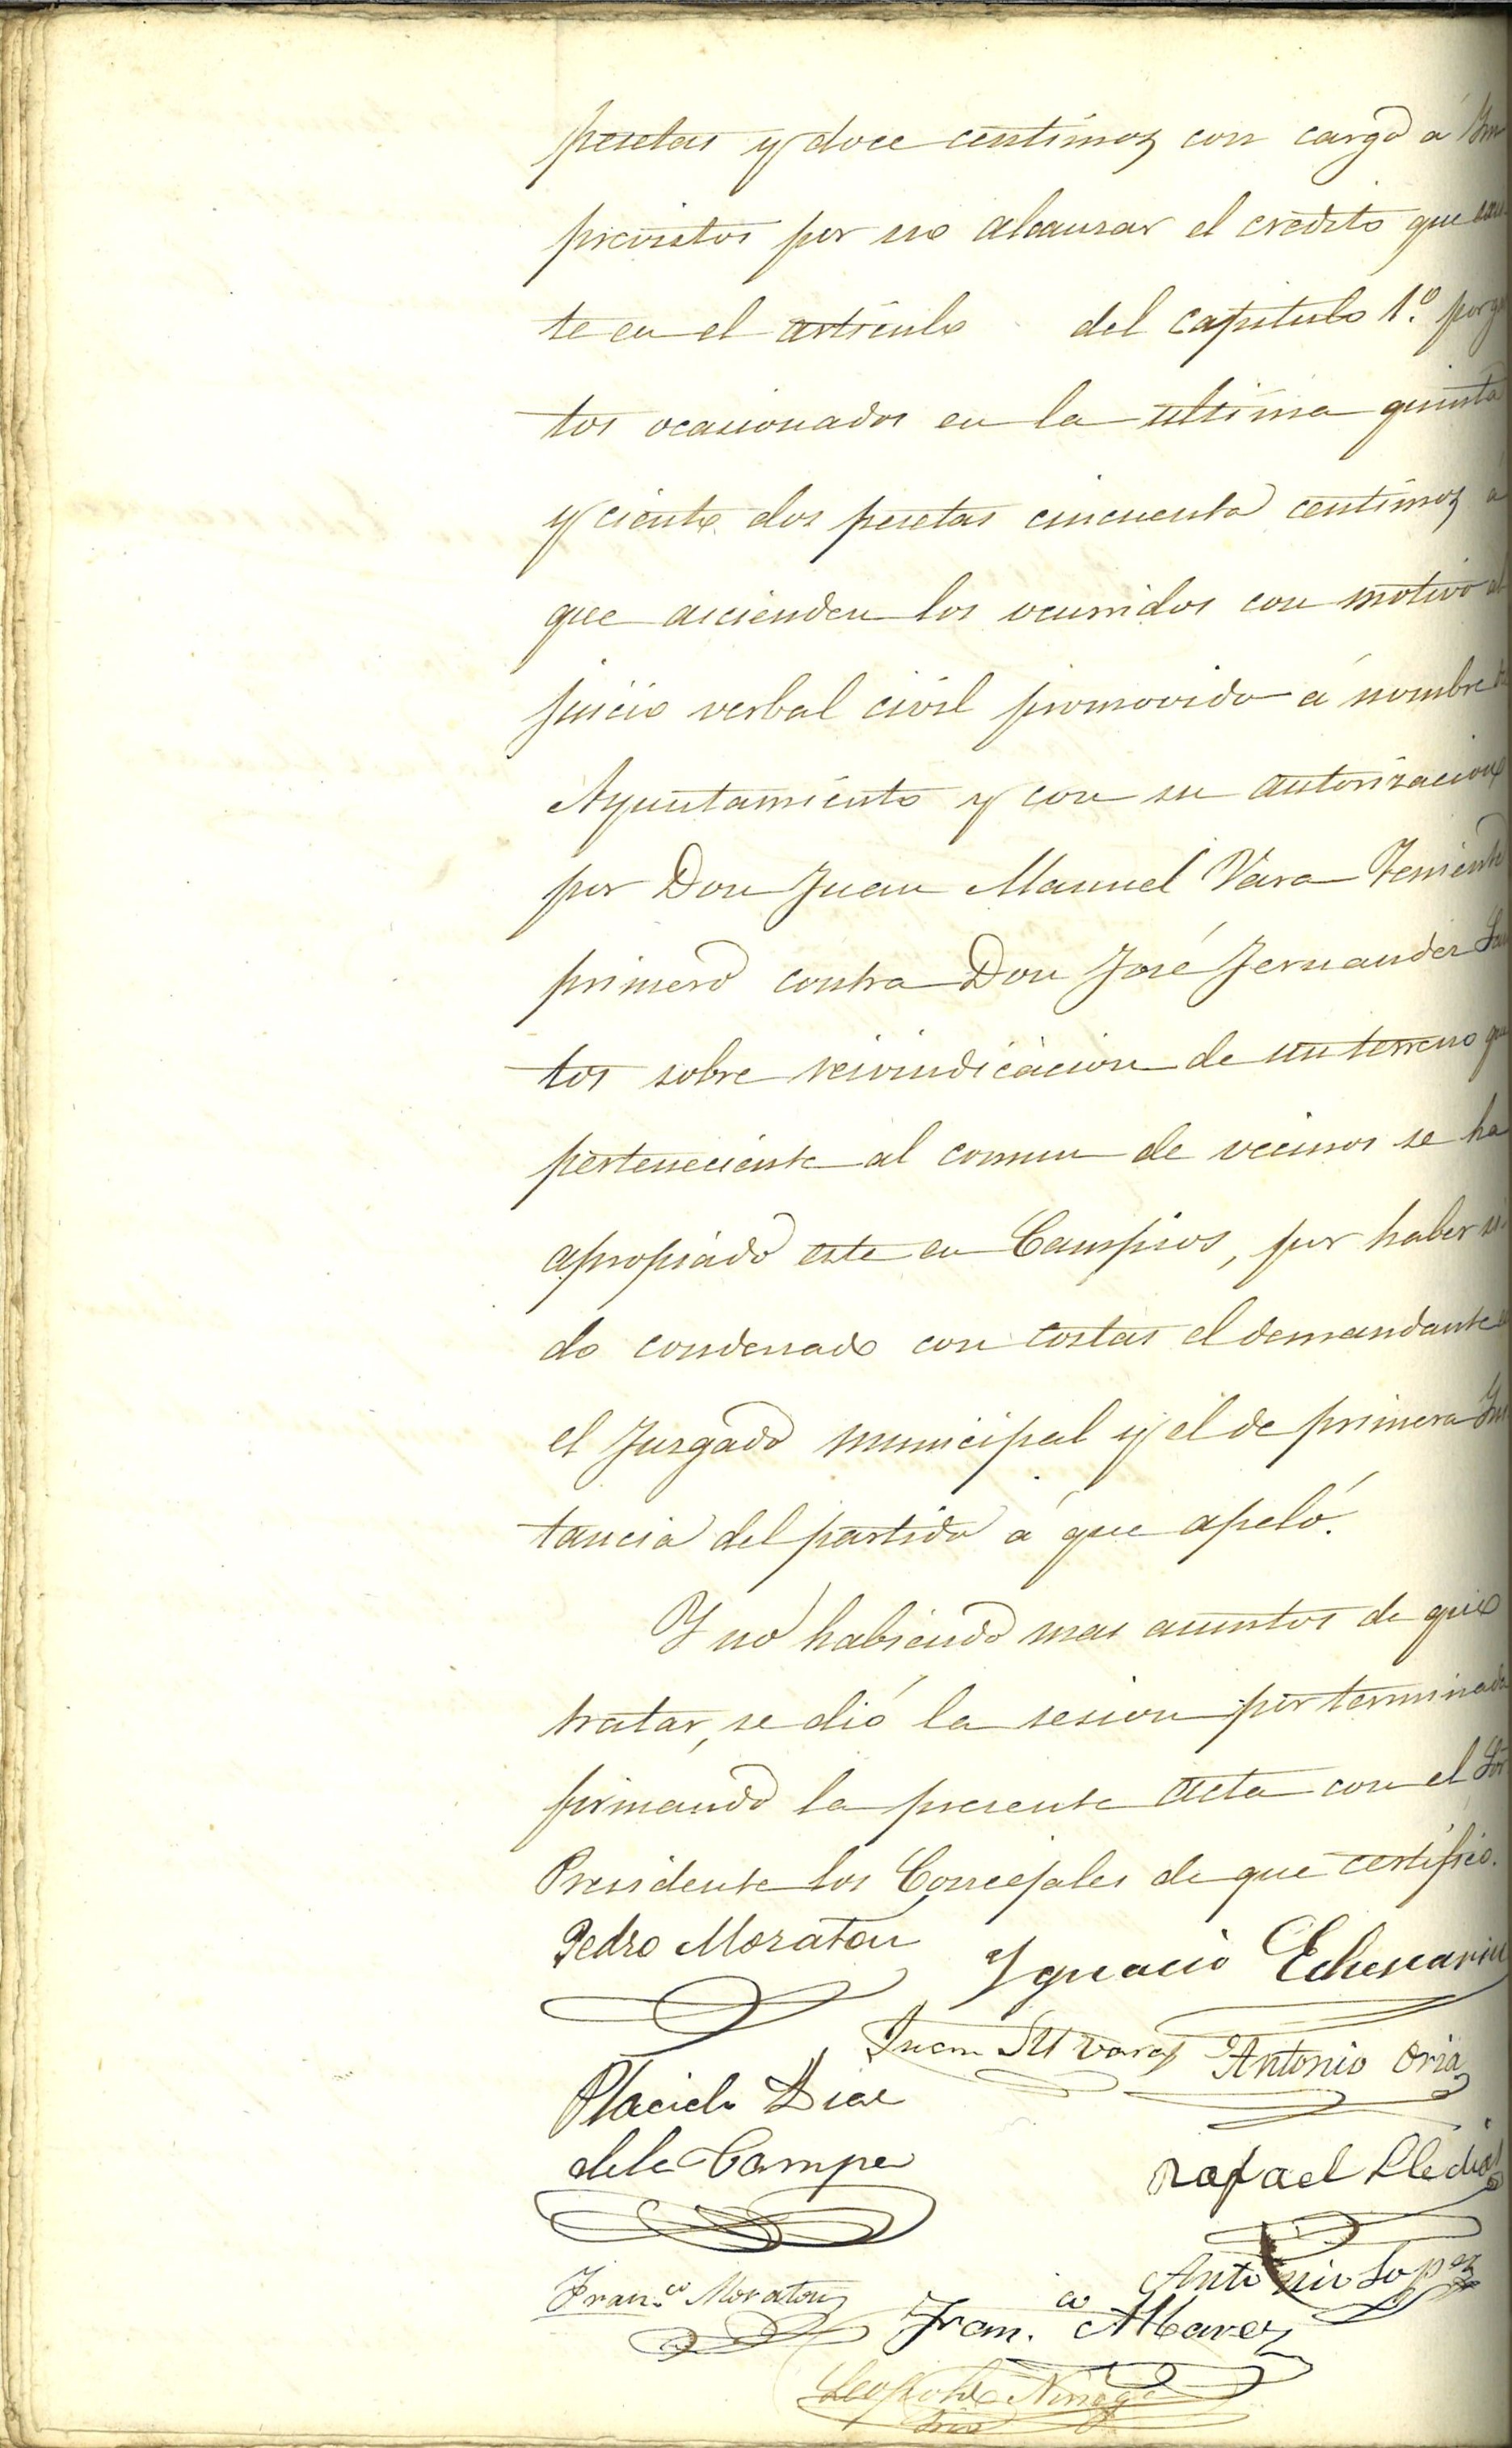 pesetas y doce centimos con cargo á Im
previstos por no alcanzar el credito que
te en el articulo del capitulo 1.º por
tos ocasionados en la ultima quinta
y ciento dos pesetas cincuenta centimos á
que ascienden los ocurridos con motivo
juicio verbal civil promovido á nombre
Ayuntamiento y con su autorizacion
por Don Juan Manuel Vara Teniente
primero contra Don José Fernandez
tos sobre reivindicacion de un terreno
perteneciente al comun de vecinos se ha
apropiado este en Campios, por haber si
do condenado con costas el demandante
el Juzgado municipal y el de primera Ins
tancia del partido á que apeló.
Y no habiendo mas asuntos de que
tratar, se dió la sesion por terminada
firmando la presente acta con el Sor
Presidente los Concejales de que certifico.
Pedro Moraton Ygnacio Echevarria
Juan M Vara Antonio Oria
Placido Diaz
de la Campa Rafael
Antonio Lopez
Fran.co Moraton Fran.co
Leopoldo